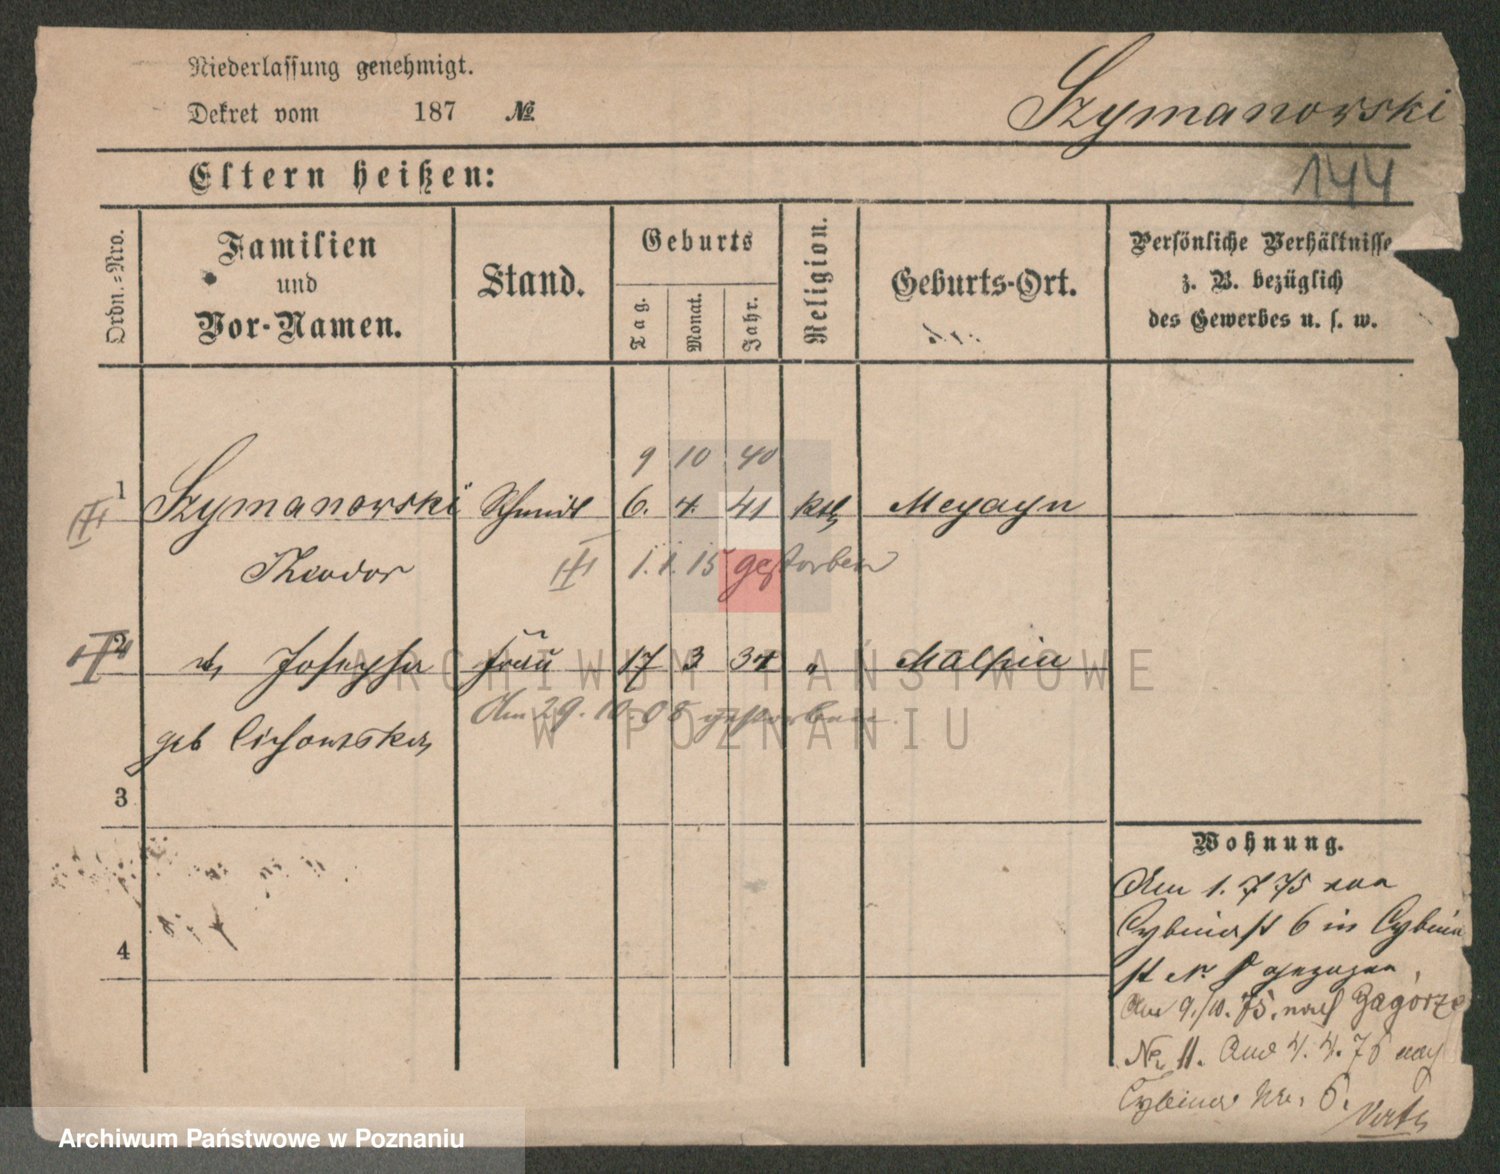 Niederlassung genehmigt.
Dekret vom 187 №
Szymanowski
144
Eltern heißen:
Ordn.-Nro.
Familien
und
Vor-Namen.
Stand.
Geburts
Tag.
Monat.
Jahr.
Religion.
Geburts-Ort.
Persönliche Verhältnisse
z. B. bezüglich
des Gewerbes u. s. w.
9 10 40
1 Szymanowski Schmidt 6. 4. 41 kth
Theodor 1. 1. 15 gestorben
2 Josepha Frau 17 3 34 "
Am 29. 10. 08 gestorben.
geb Cichowska
3
4
Wohnung.
Am 1. 7 75 von
Cybinast 6 in Cybina
st Nr gezogen,
Am 9./10. 75. nach Zagorze
No 11. Am 4. 4. 76 nach
Cybina No. 6.
ARCHIWUM PAŃSTWOWE
W POZNANIU
Archiwum Państwowe w Poznaniu